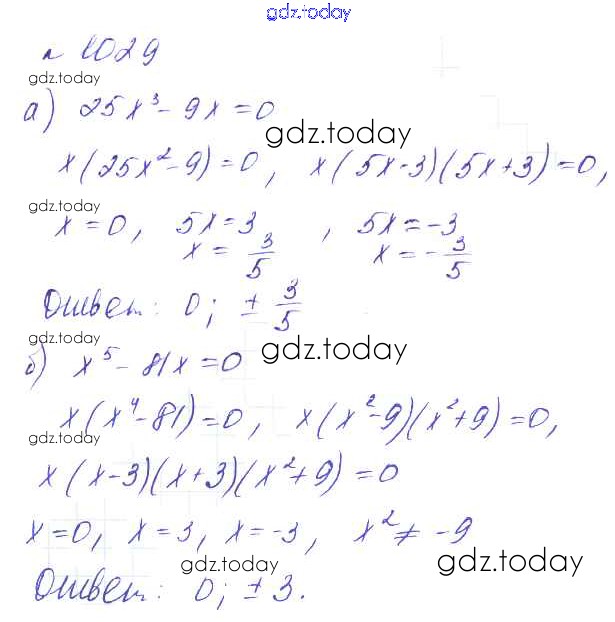 gdz.today
№ 1029
gdz.today
а) 25x³ - 9x = 0
gdz.today
x(25x² - 9) = 0, x(5x - 3)(5x + 3) = 0,
gdz.today
x = 0, 5x = 3, 5x = -3
x = 3/5 x = -3/5
Ответ: 0; ± 3/5
gdz.today
gdz.today
б) x⁵ - 81x = 0
x(x⁴ - 81) = 0, x(x² - 9)(x² + 9) = 0,
gdz.today
gdz.today
x(x - 3)(x + 3)(x² + 9) = 0
x = 0, x = 3, x = -3, x² ≠ -9
gdz.today
gdz.today
Ответ: 0; ± 3.